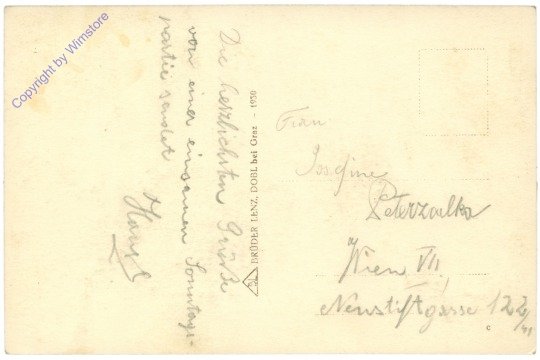 Copyright by Wimstore
Die herzlichsten Grüße
von einer einsamen Sonntags-
partie sendet
Hansl
BRÜDER LENZ, DOBL bei Graz - 1930
Frau
Josefine
Peterzalka
Wien VII
Neustiftgasse 122